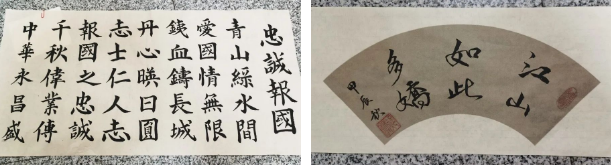 忠誠報國
青山綠水間
愛國情無限
鐵血鑄長城
丹心暎日圓
志士仁人志
報國之忠誠
千秋偉業傳
中華永昌盛
江山
如此
多嬌
甲辰秋